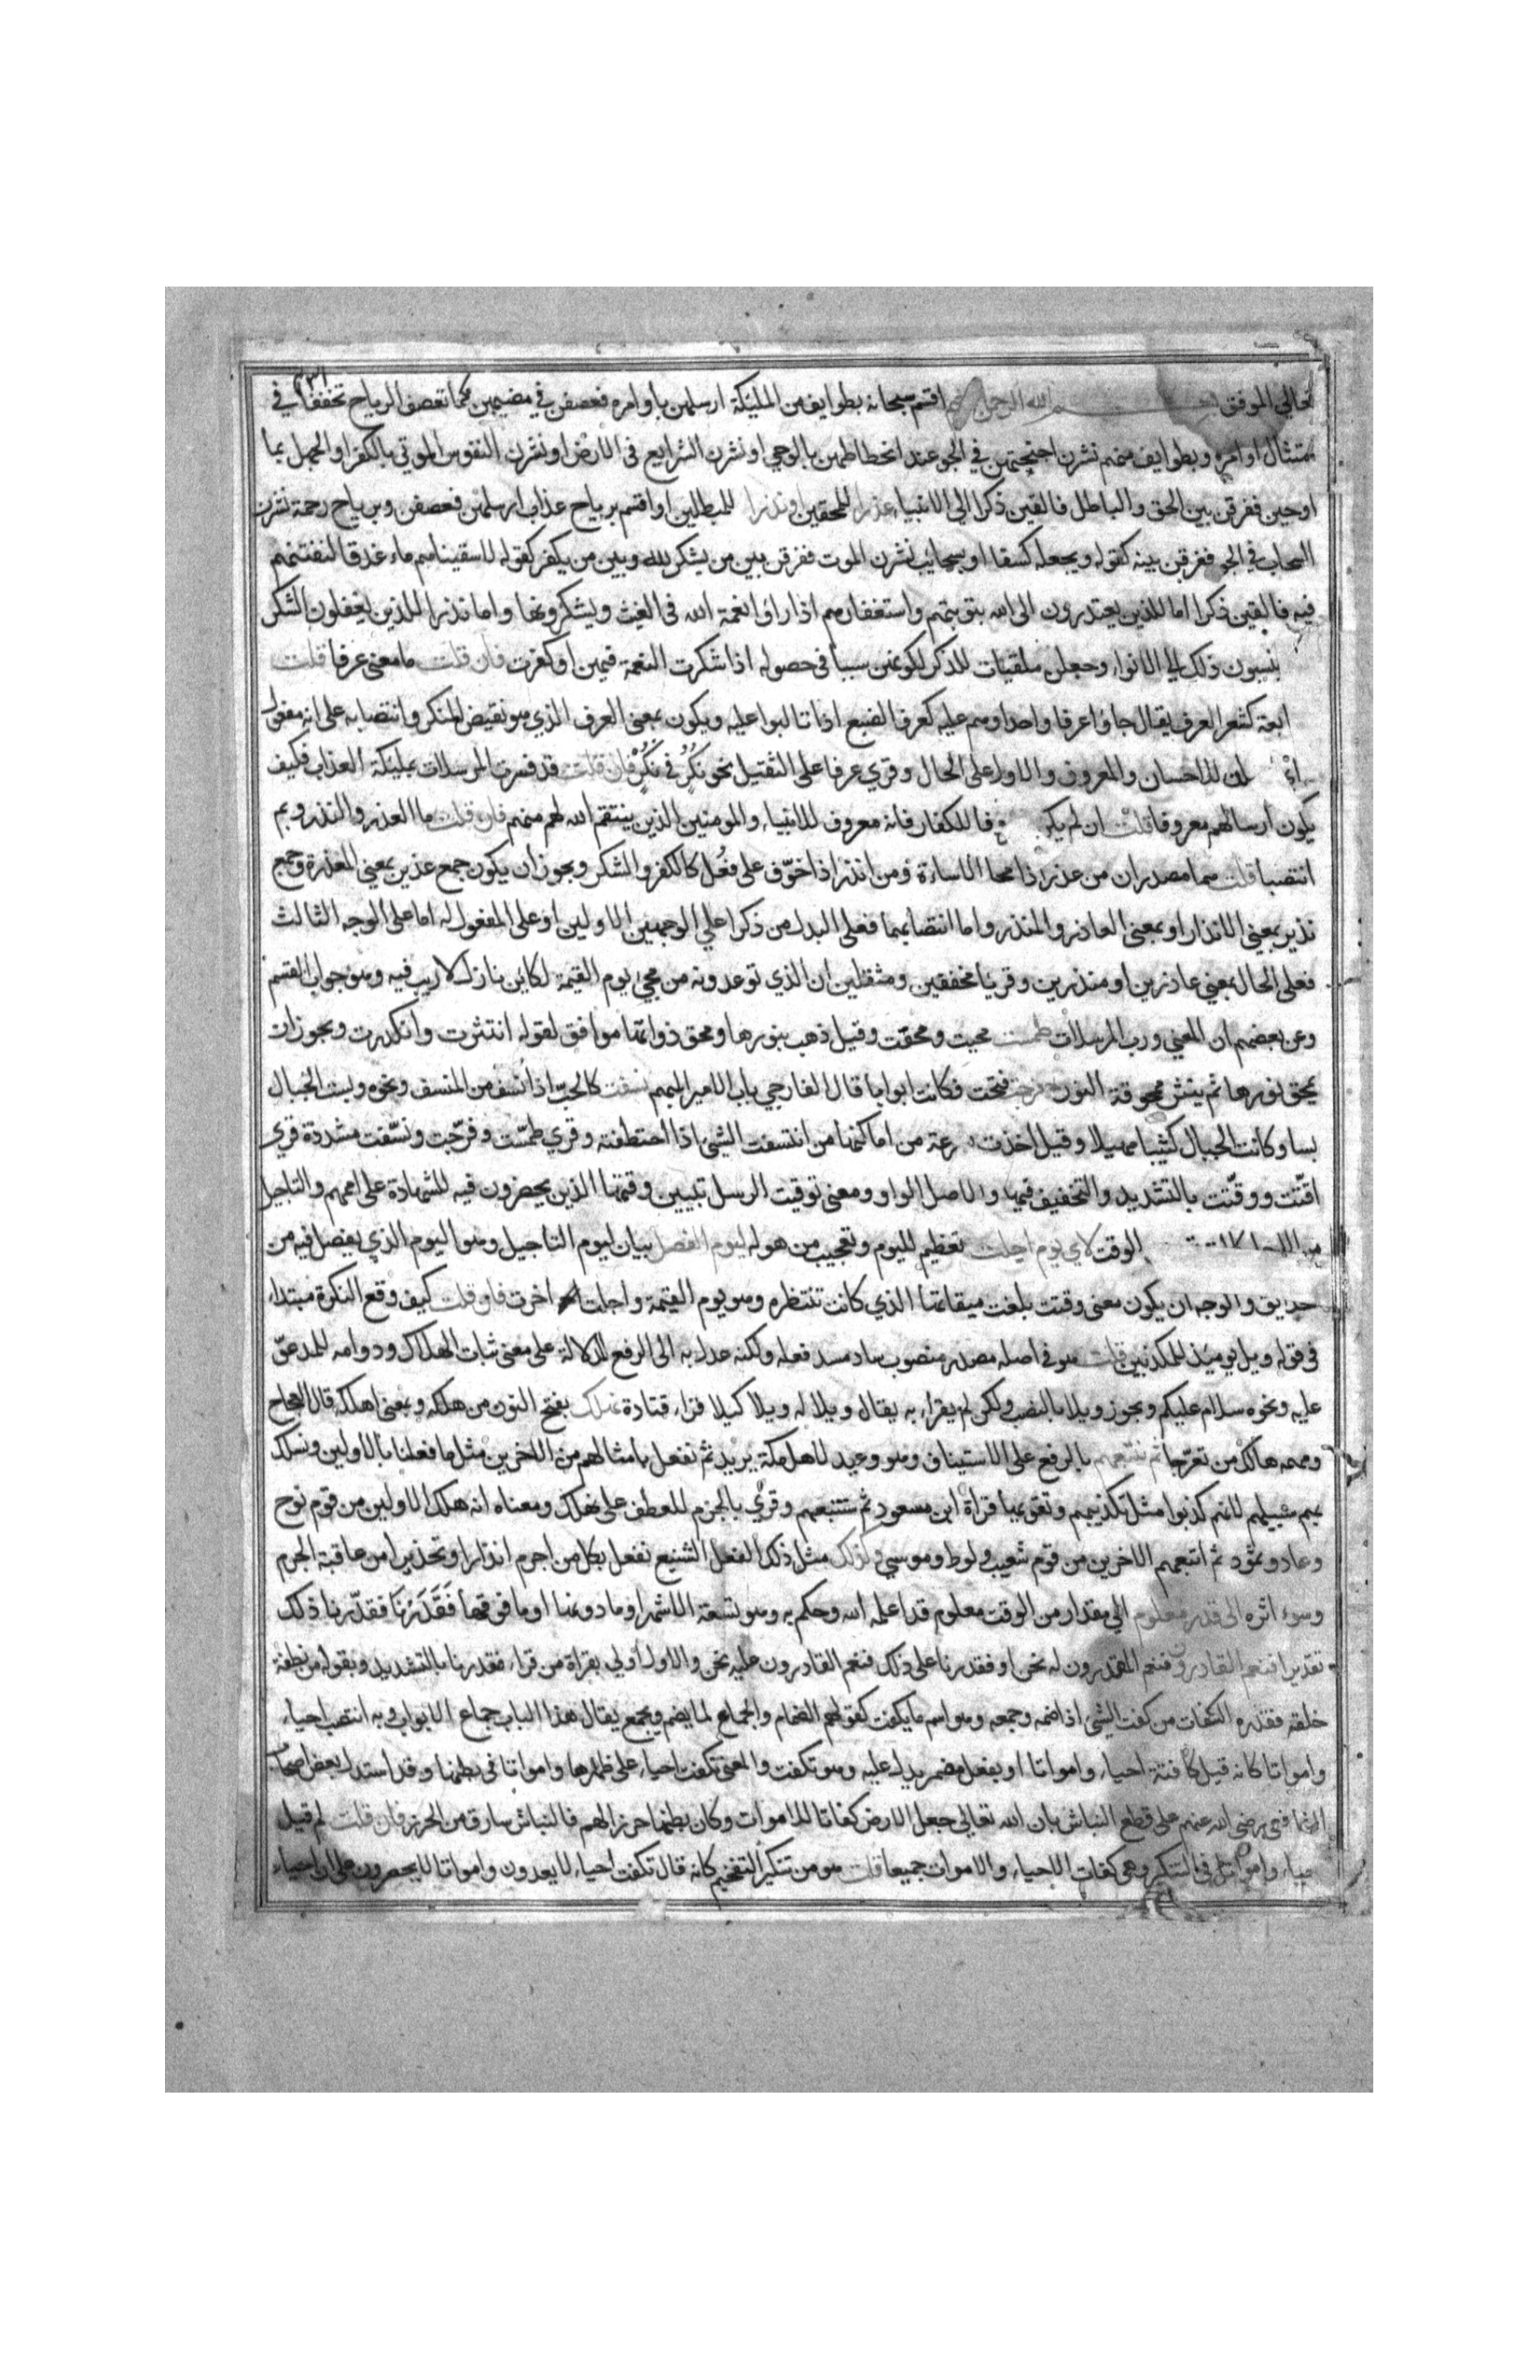 تعالى الموفق بسم الله الرحمن اقسم سبحانه بطوايف من المليكة ارسلهن باوامره فعصفن في مضيهن كما تعصف الرياح تخففا في
امتثال اوامره وبطوايف منهم نشرن اجنحتهن في الجو عند انحطاطهن بالوحي او نشرن الشرايع فى الارض او نشرن النفوس الموتي بالكفر او الجهل بما
اوحين ففرقن بين الحق والباطل فالقين ذكرا الى الانبيا عذرا للمحقين او نذرا للمبطلين او اقسم برياح عذاب ارسلهن فعصفن وبرياح رحمة نشرن
السحاب في الجو ففرقن بينه كقوله ويجعله كسفا او بسحايب نشرن الموت ففرقن بين من يشكر لله وبين من يكفر كقوله لاسقيناهم ماء غدقا لنفتنهم
فيه فالقين ذكرا اما للذين يعتذرون الى الله بتوبتهم واستغفارهم اذا راوا نعمة الله فى الغيث ويشكرونها واما نذرا للذين يغفلون الشكر
ينسبون ذلك الي الانواء وجعلن ملقيات للذكر لكونهن سببا فى حصوله اذا شكرت النعمة فيهن او كفرت فان قلت ما معنى عرفا قلت
كشعر العرف يقال جاؤا عرفا واحدا وهم عليه كعرف الضبع اذا تالبوا عليه ويكون بمعنى العرف الذي هو نقيض المنكر وانتصابه على انه مفعول
للاحسان والمعروف والاول على الحال وقري عرفا على التثقيل نحو نكر في نكر فان قلت قد فسرت المرسلات بمليكة العذاب فكيف
يكون ارسالهم معروفا قلت ان لم يكن للكفار فانه معروف للانبياء والمومنين الذين ينتقم الله لهم منهم فان قلت ما العذر والنذر وبم
انتصبا قلت هما مصدران من عذر اذا محا الاساءة ومن انذر اذا خوّف على فعُل كالكفر والشكر ويجوز ان يكون جمع عذير بمعني المعذرة وجمع
نذير بمعنى الانذار او بمعنى العاذر والمنذر واما انتصابهما فعلى البدل من ذكرا علي الوجهين الاولين او على المفعول له اما على الوجه الثالث
فعلى الحال بمعني عاذرين او منذرين وقريا مخففين ومثقلين ان الذي توعدونه من مجيء يوم القيمة لكاين نازل لا ريب فيه وهو جواب القسم
وعن بعضهم ان المعني ورب المرسلات طمست محيت ومحقت وقيل ذهب بنورها ومحق ذواتها موافق لقوله انتثرت وانكدرت ويجوز ان
يمحق نورها ثم ينتثر ممحوقة النور فرجت فتحت فكانت ابوابا قال الفارجي باب الامير المبهم نسفت كالحب اذا نسف من المنسف ونحوه وبست الجبال
بسا وكانت الجبال كثيبا مهيلا وقيل اخذت من اماكنها من انتسفت الشئ اذا اختطفته وقري طمّست وفرّجت ونسّفت مشددة قري
اقّتت ووقّتت بالتشديد والتخفيف فيهما والاصل الواو ومعنى توقيت الرسل تبيين وقتها الذين يحضرون فيه للشهادة على اممهم والتاجيل
الوقت لاي يوم اجلت تعظيم لليوم وتعجيب من هوله ليوم الفصل بيان ليوم التاجيل وهو اليوم الذي يفصل فيه من
والوجه ان يكون معنى وقتت بلغت ميقاتها الذي كانت تنتظره وهو يوم القيمة واجلت اخرت فان قلت كيف وقع النكرة مبتداء
فى قوله ويل يوميذ للمكذبين قلت هو فى اصله مصدر منصوب ساد مسد فعله ولكنه عدل به الى الرفع للدلالة على معنى ثبات الهلاك ودوامه للمدعوّ
عليه ونحوه سلام عليكم ويجوز ويلا بالنصب ولكن لم يقراء به يقال ويلا له ويلا كيلا قراء قتادة نهلك بفتح النون من هلكه وبمعنى اهلكه قال العجاج
ومهمه هالك من تعرّجا ثم نتبعهم بالرفع على الاستيناف وهو وعيد لاهل مكة يريد ثم نفعل بامثالهم من الاخرين مثل ما فعلنا بالاولين ونسلك
بهم سبيلهم لانهم كذبوا مثل تكذيبهم وتقويها قراة ابن مسعود ثم سنتبعهم وقرئ بالجزم للعطف على نهلك ومعناه انه هلك الاولين من قوم نوح
وعاد وثمود ثم اتبعهم الاخرين من قوم شعيب ولوط وموسي كذلك مثل ذلك الفعل الشنيع نفعل بكل من اجرم انذارا وتحذيرا من عاقبة الجرم
وسوء اثره الى قدر معلوم الي مقدار من الوقت معلوم قد اعلمه الله وحكم به وهو تسعة الاشهر او ما دونها او ما فوقها فقدرنا فقدّرنا ذلك
تقديرا فنعم القادرون فنعم المقدرون له نحن او فقدرنا على ذلك فنعم القادرون عليه نحن والاول اولى بقراة من قراء فقدرنا بالتشديد وبقوله من نطفة
خلقه فقدره الكفات من كفت الشئ اذا ضمه وجمعه وهو اسم ما يكفت كقولهم الضمام والجماع لما يضم ويجمع يقال هذا الباب جماع الابواب وبه انتصب احياء
وامواتا كانه قيل كافتة احياء وامواتا او بفعل مضمر يدل عليه وهو تكفت والمعنى تكفت احياء على ظهرها وامواتا فى بطنها وقد استدل بعض اصحاب
الشافعي رضى الله عنهم على قطع النباش بان الله تعالى جعل الارض كفاتا للاموات وكان بطنها حرزا لهم فالنباش سارق من الحرز فان قلت لم قيل
احياء وامواتا على التنكير وهى كفات الاحياء والاموات جميعا قلت هو من تنكير التفخيم كانه قال تكفت احياء لا يعدون وامواتا لا يحصرون على ان احياء